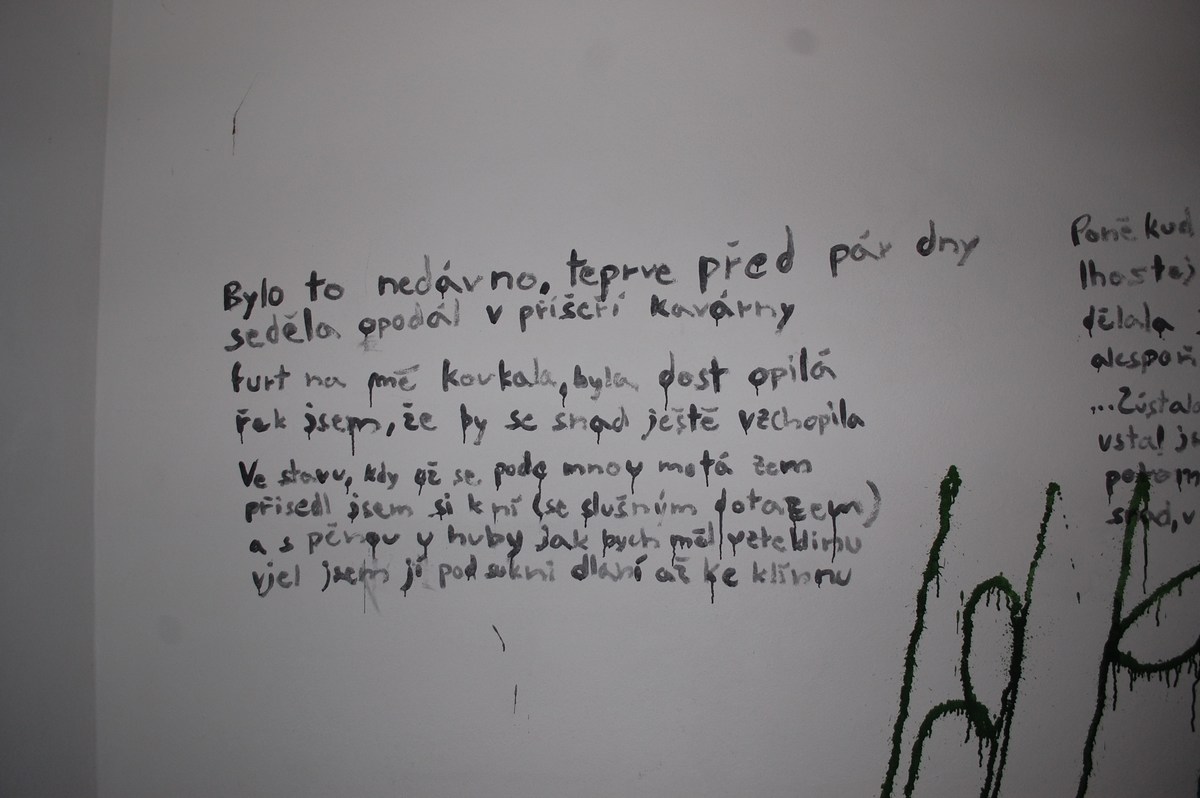 Bylo to nedávno, teprve před pár dny
seděla opodál v příšeří kavárny
furt na mě koukala, byla dost opilá
řek jsem, že by se snad ještě vzchopila
Ve stavu, kdy až se podo mnou motá zem
přisedl jsem si k ní (se slušným dotazem)
a s pěnou u huby jak bych měl vzteklinu
vjel jsem jí pod sukni dlaní až ke klínu
Poněkud
lhostej
dělala
alespoň
...Zůstala
vstal js
potom